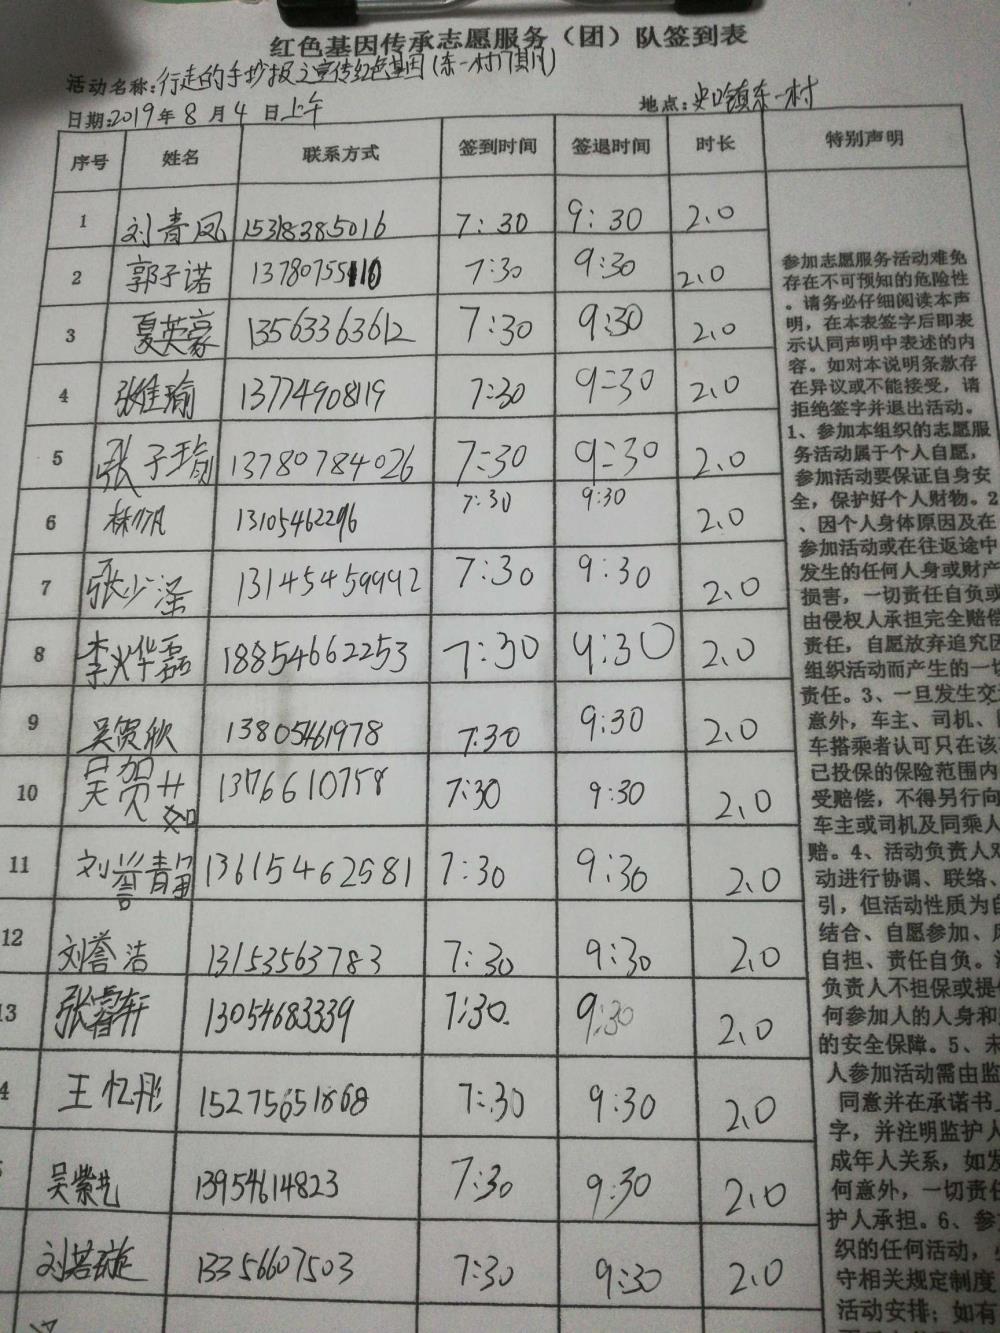 红色基因传承志愿服务（团）队签到表
活动名称:行走的手抄报之宣传红色基因(东一村门其风)
日期:2019年8月4日上午 地点:史口镇东一村
序号 姓名 联系方式 签到时间 签退时间 时长 特别声明
1 刘青凤 15318385016 7:30 9:30 2.0
2 郭子诺 13780755110 7:30 9:30 2.0
3 夏英豪 13563363612 7:30 9:30 2.0
4 张维瑜 13774908119 7:30 9:30 2.0
5 张子瑜 13780784026 7:30 9:30 2.0
6 林帆 13105462296 7:30 9:30 2.0
7 张少泽 13145459992 7:30 9:30 2.0
8 李烨磊 18854662253 7:30 9:30 2.0
9 吴贺欣 13805461978 7:30 9:30 2.0
10 吴 1376610758 7:30 9:30 2.0
11 刘誉菁 13615462581 7:30 9:30 2.0
12 刘誉洁 13153563783 7:30 9:30 2.0
13 张睿轩 13054683339 7:30 9:30 2.0
4 王忆彤 15275651868 7:30 9:30 2.0
吴紫 13954614823 7:30 9:30 2.0
刘若璇 13356607503 7:30 9:30 2.0
参加志愿服务活动难免
存在不可预知的危险性
。请务必仔细阅读本声
明，在本表签字后即表
示认同声明中表述的内
容。如对本说明条款存
在异议或不能接受，请
拒绝签字并退出活动。
1、参加本组织的志愿服
务活动属于个人自愿，
参加活动要保证自身安
全，保护好个人财物。2
、因个人身体原因及在
参加活动或在往返途中
发生的任何人身或财产
损害，一切责任自负或
由侵权人承担完全赔偿
责任，自愿放弃追究因
组织活动而产生的一切
责任。3、一旦发生交
意外，车主、司机、
车搭乘者认可只在该
己投保的保险范围内
受赔偿，不得另行向
车主或司机及同乘人
赔。4、活动负责人对
动进行协调、联络、
引，但活动性质为自
结合、自愿参加、
自担、责任自负。
负责人不担保或提供
何参加人的人身和
的安全保障。5、未
人参加活动需由监
同意并在承诺书上
字，并注明监护人
成年人关系，如发
何意外，一切责任
护人承担。6、参
织的任何活动，
守相关规定制度
活动安排；如有